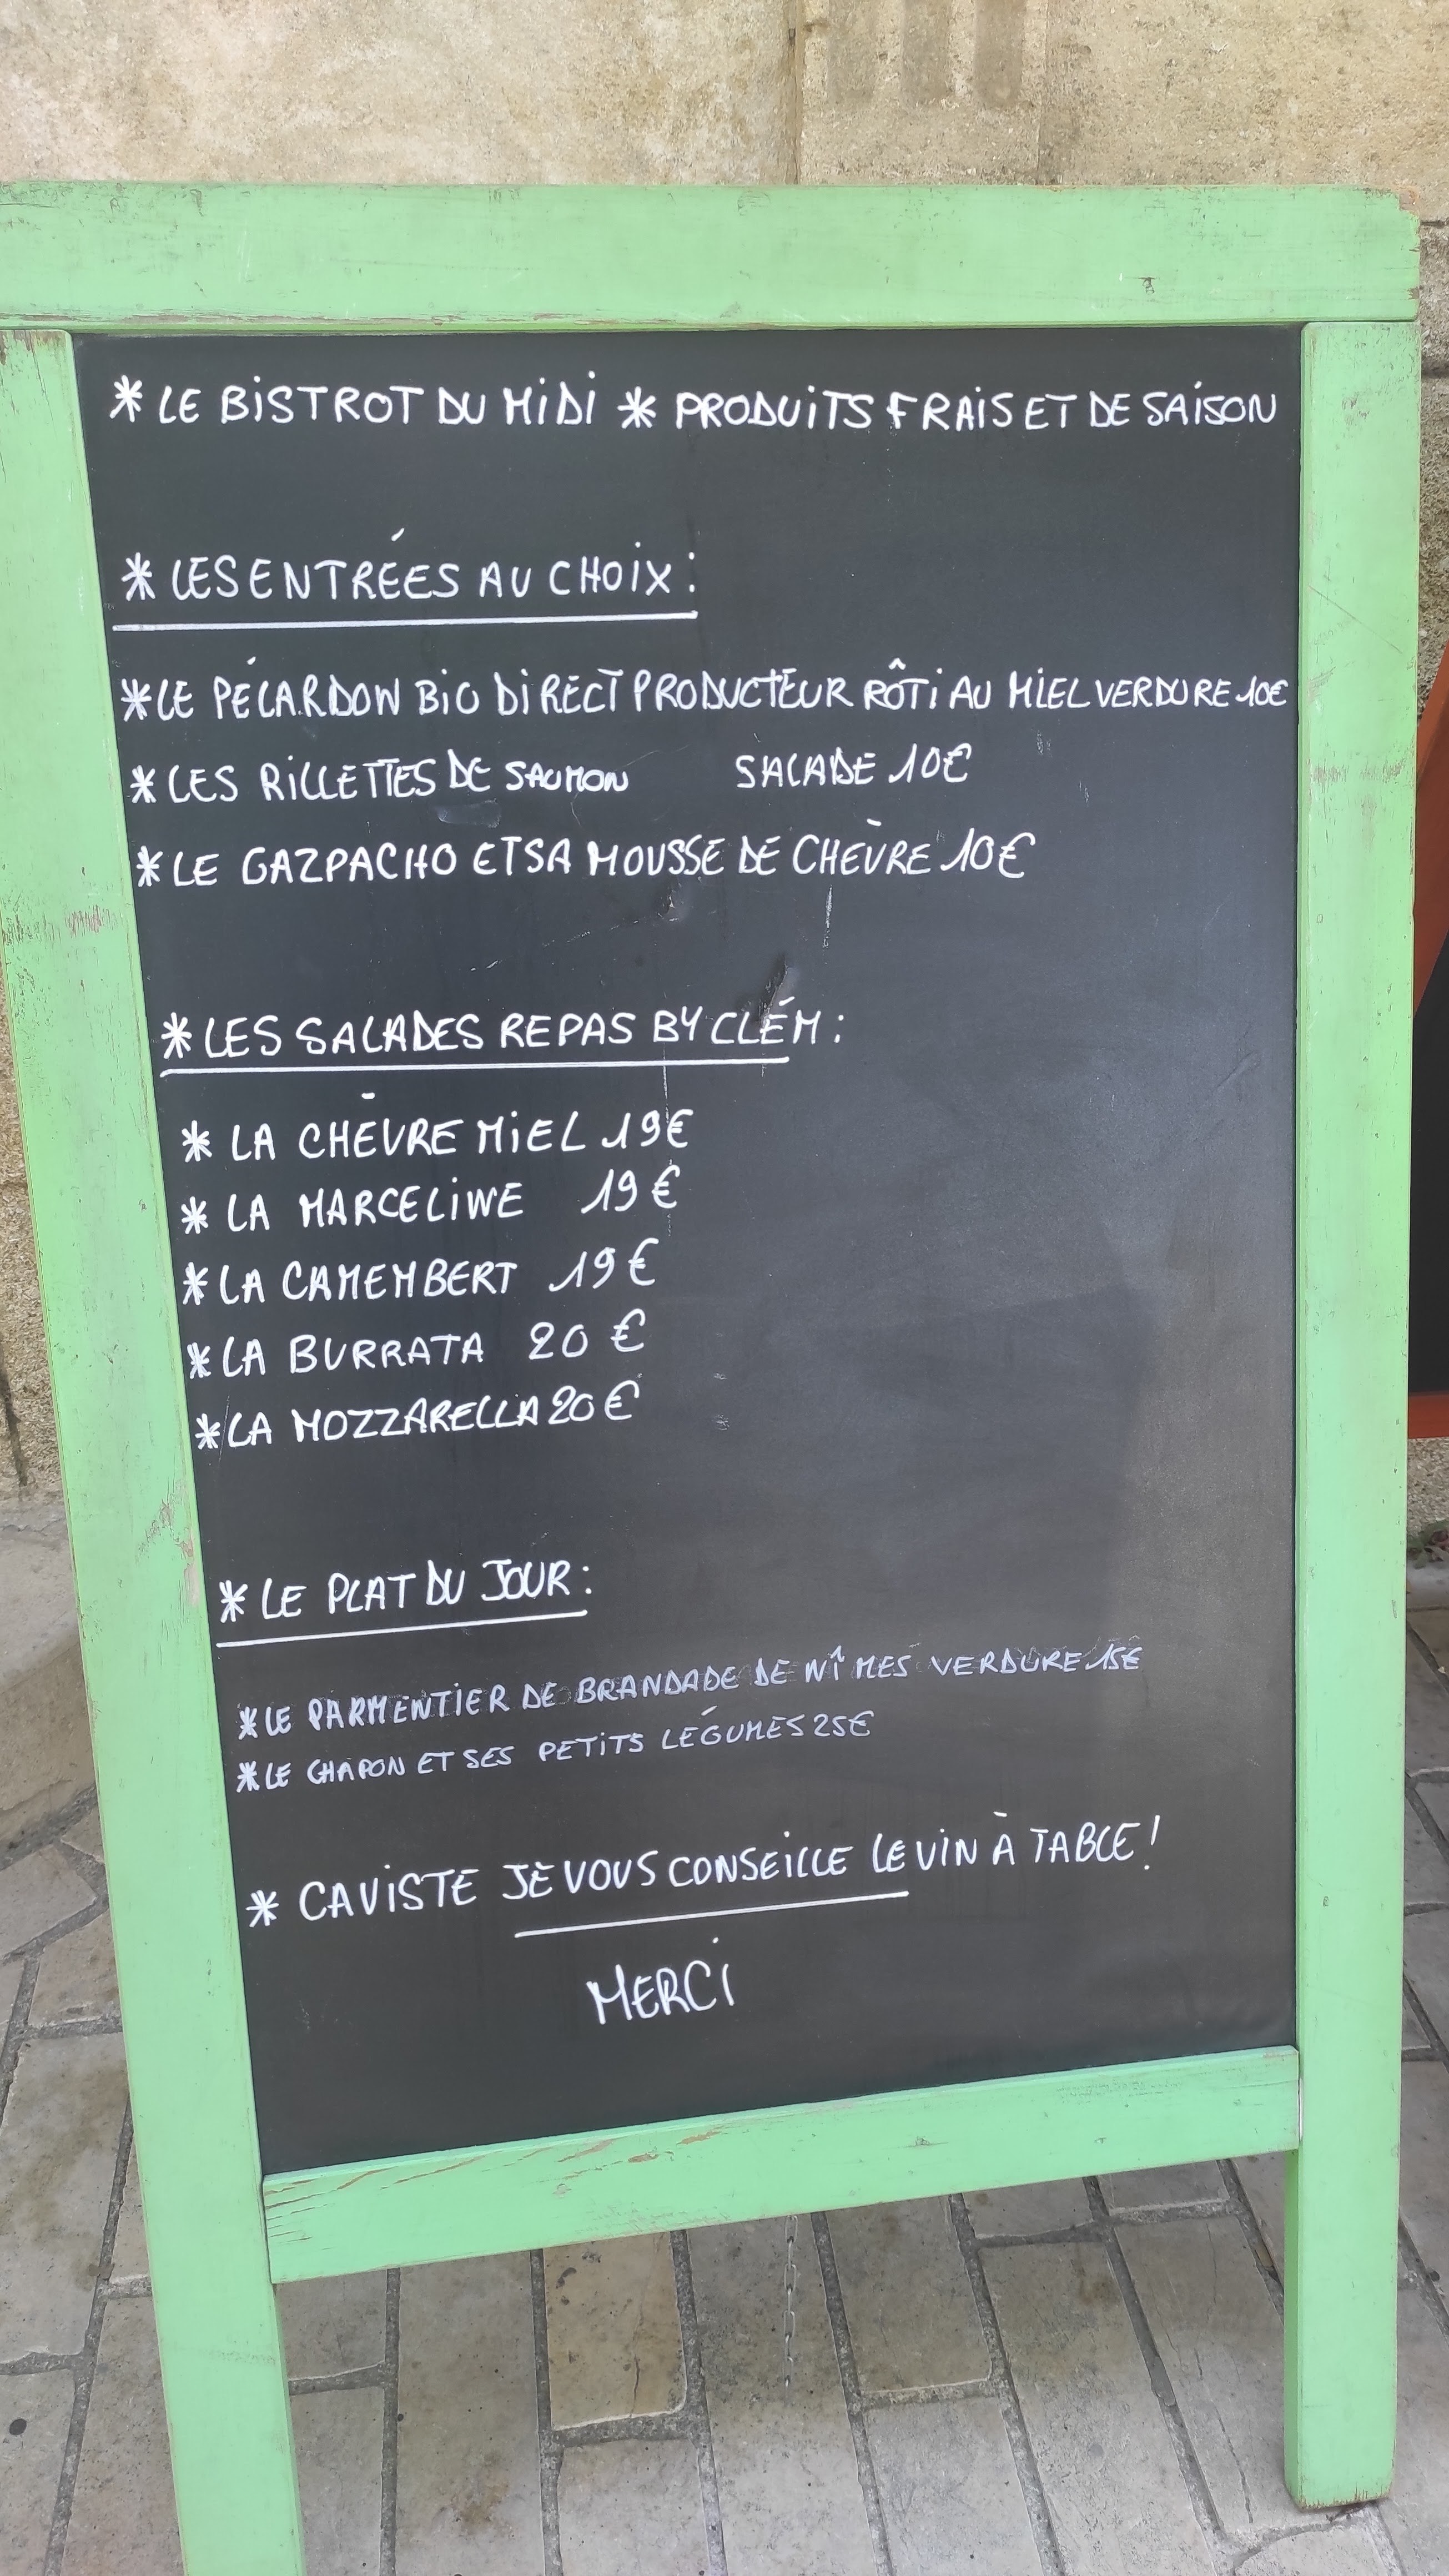 * LE BISTROT DU MIDI * PRODUITS FRAIS ET DE SAISON
* LES ENTRÉES AU CHOIX :
* LE PÉLARDON BIO DIRECT PRODUCTEUR RÔTI AU MIEL VERDURE 10€
* LES RILLETTES DE SAUMON SALADE 10€
* LE GAZPACHO ET SA MOUSSE DE CHÈVRE 10€
* LES SALADES REPAS BY CLÉM :
* LA CHÈVRE MIEL 19€
* LA MARCELINE 19€
* LA CAMEMBERT 19€
* LA BURRATA 20 €
* LA MOZZARELLA 20€
* LE PLAT DU JOUR :
* LE PARMENTIER DE BRANDADE DE NÎMES VERDURE 15€
* LE CHAPON ET SES PETITS LÉGUMES 25€
* CAVISTE JE VOUS CONSEILLE LE VIN À TABLE !
MERCI